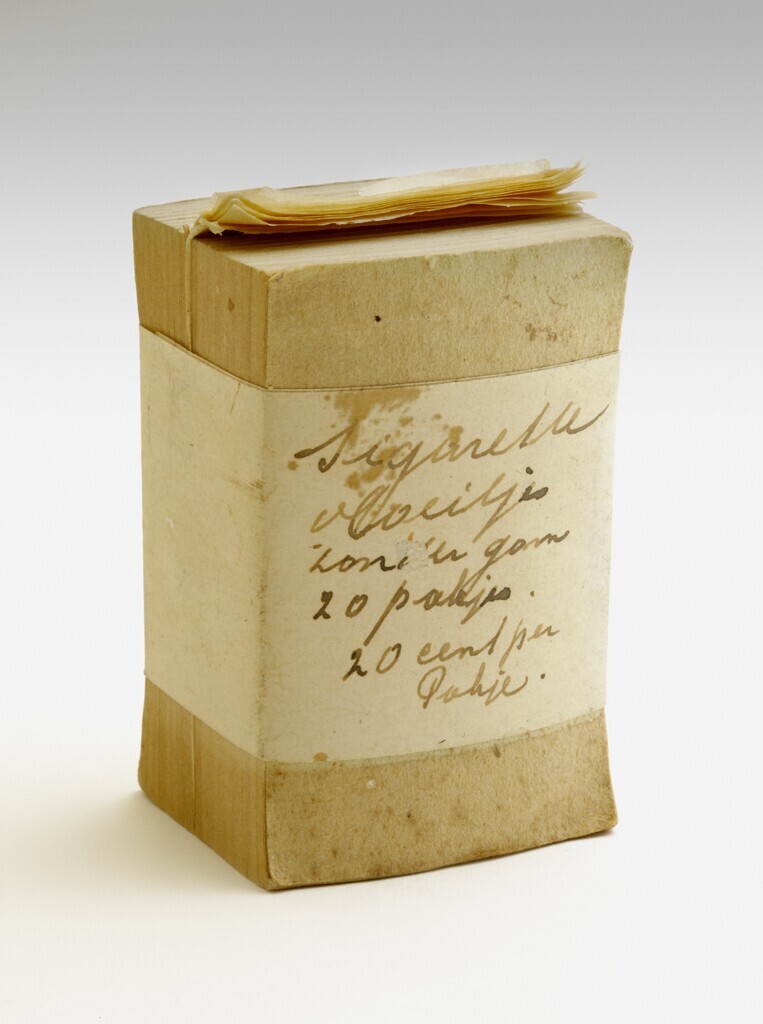 Sigarette
vloeitjes
zonder gom
20 pakjes.
20 cent per
Pakje.